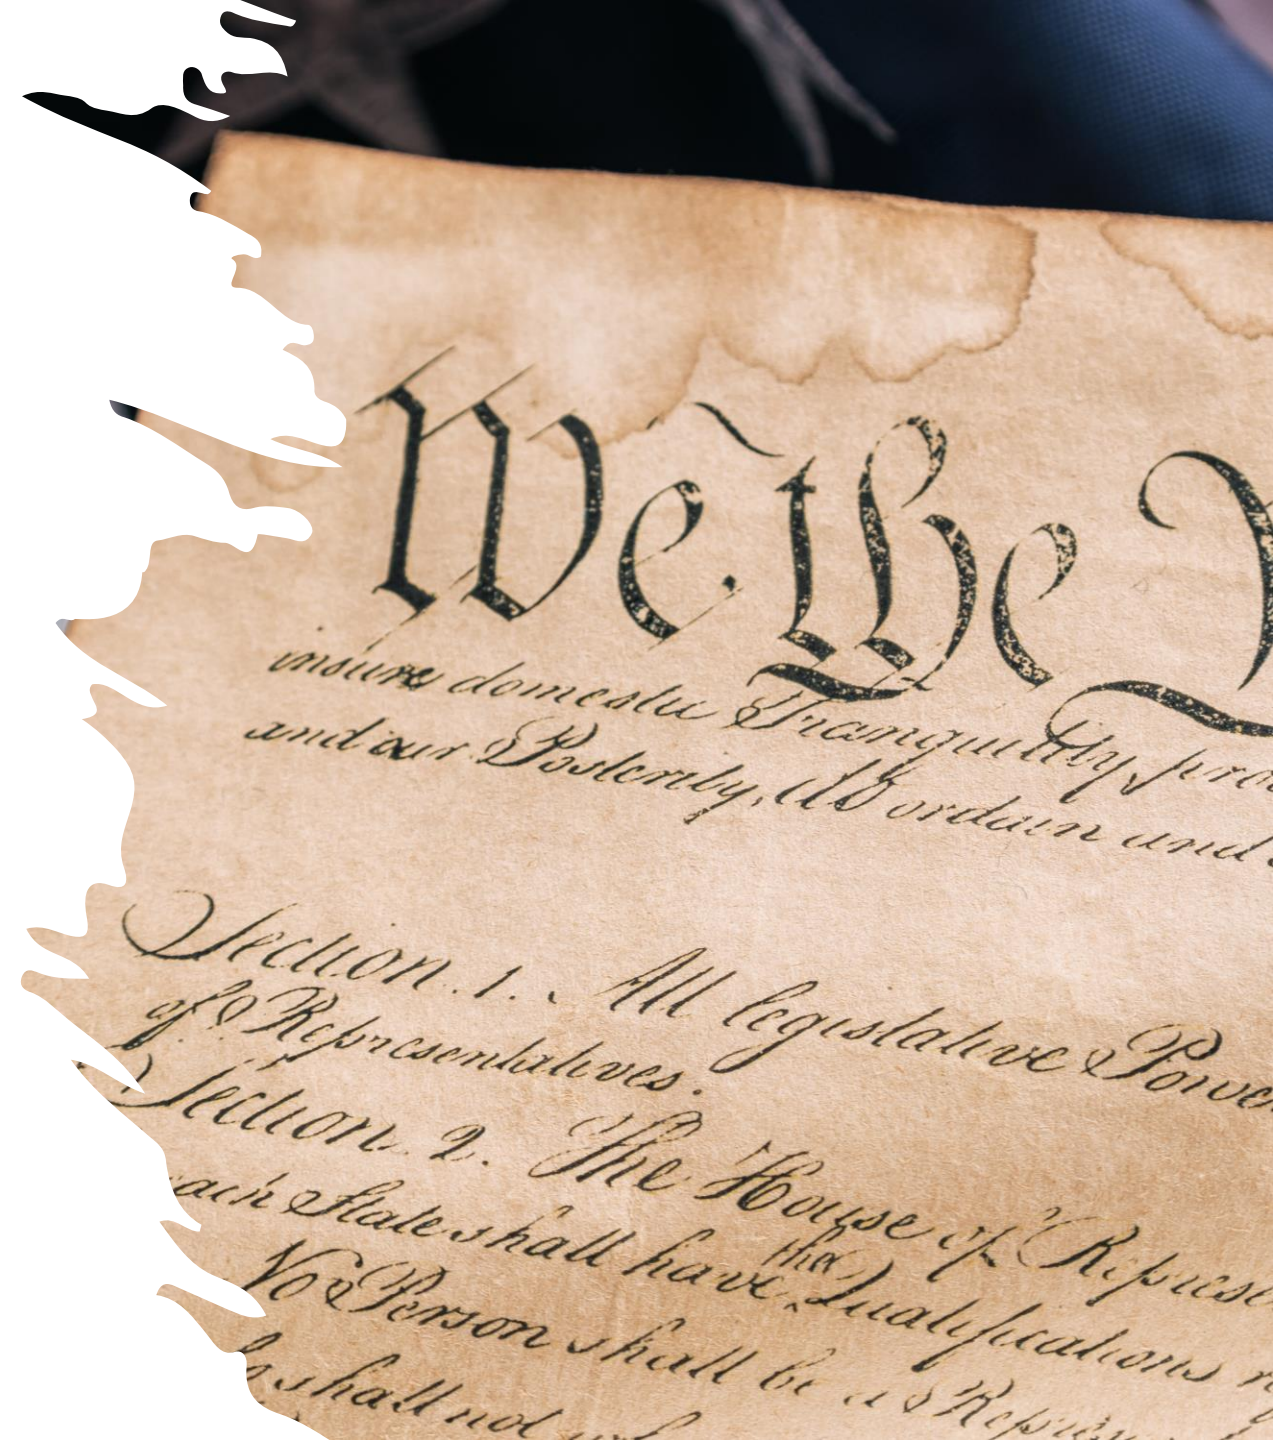 We the
insure domestic Tranquility, pro
and our Posterity, do ordain and
Section. 1. All legislative Powe
of Representatives.
Section. 2. The House of Represe
each State shall have the Qualifications
No Person shall be a Represen
shall not